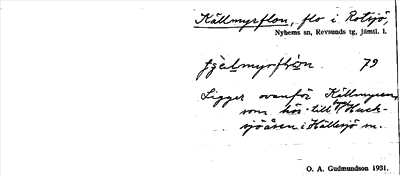 Källmyrflon, flo i Rotsjö,
Nyhems sn, Revsunds tg, Jämtl. l.
79
Ligger ovanför Källmyren,
som hör till Huck-
sjöåsen i Hällesjö sn.
O. A. Gudmundson 1931.